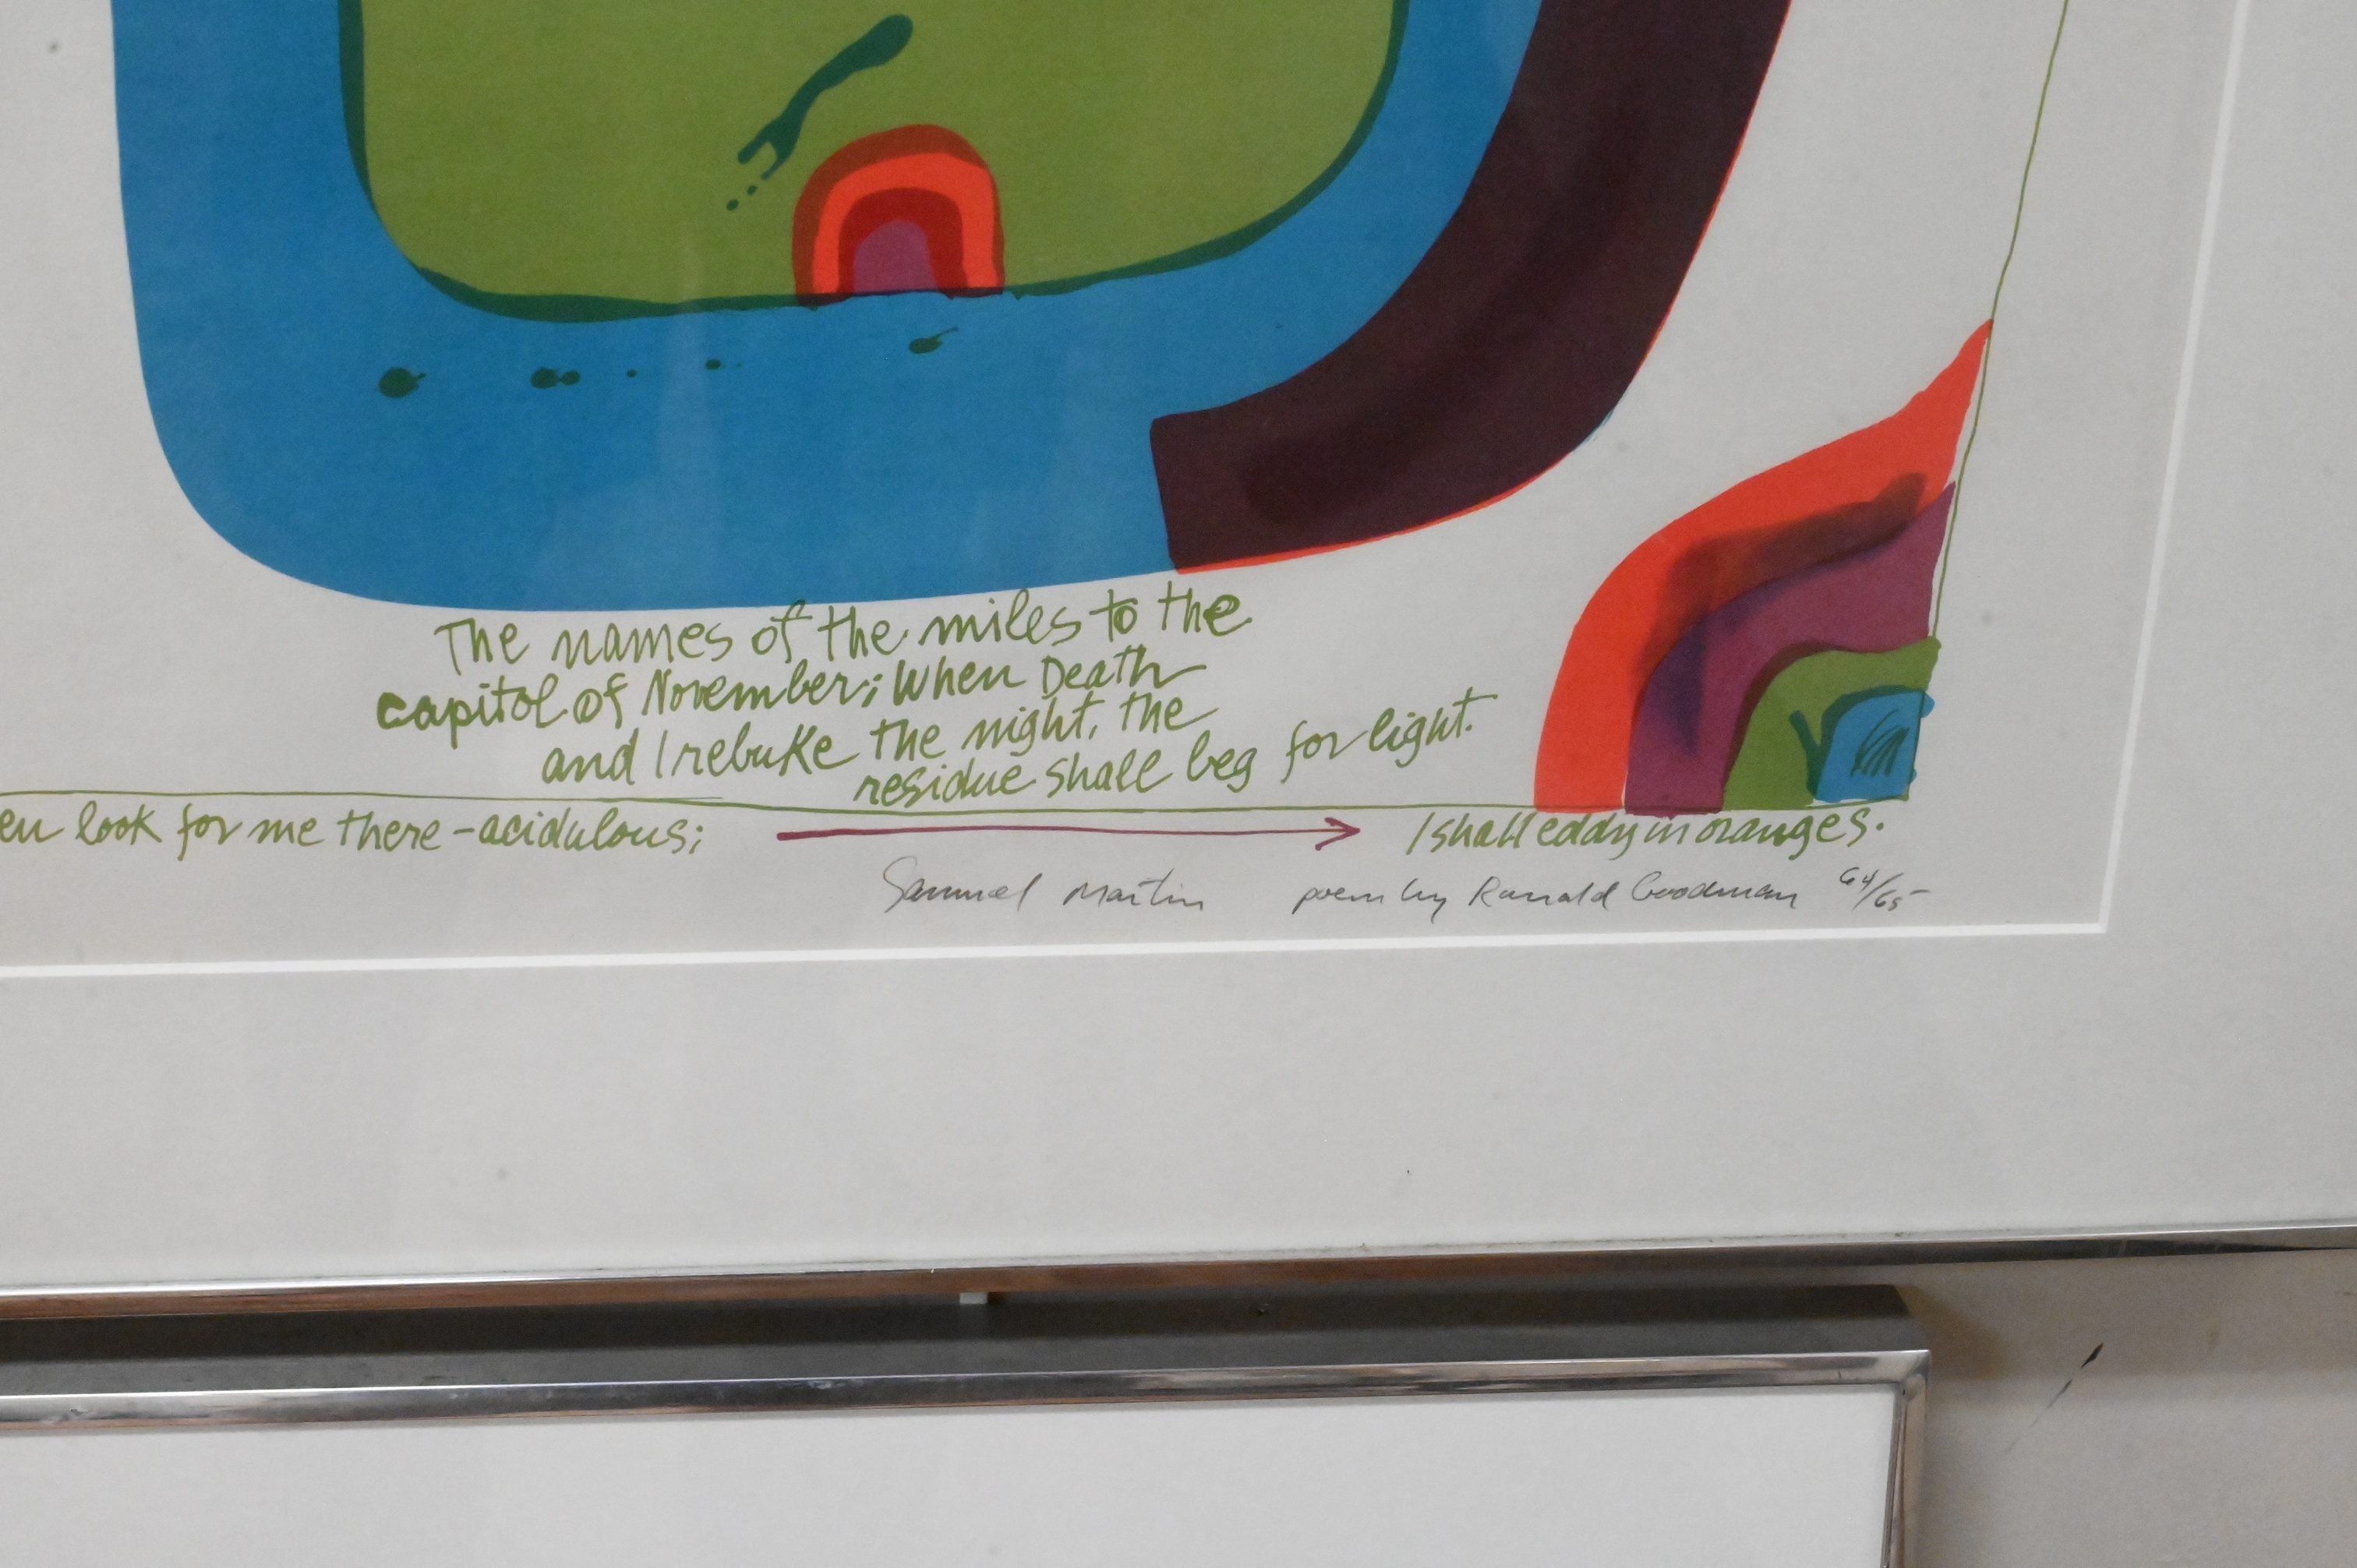 The names of the miles to the
capitol of November; When Death
and I rebuke the night, the
residue shall beg for light.
look for me there - acidulous; I shall eddy in oranges.
Samuel Martin poem by Ronald Goodman 64/65